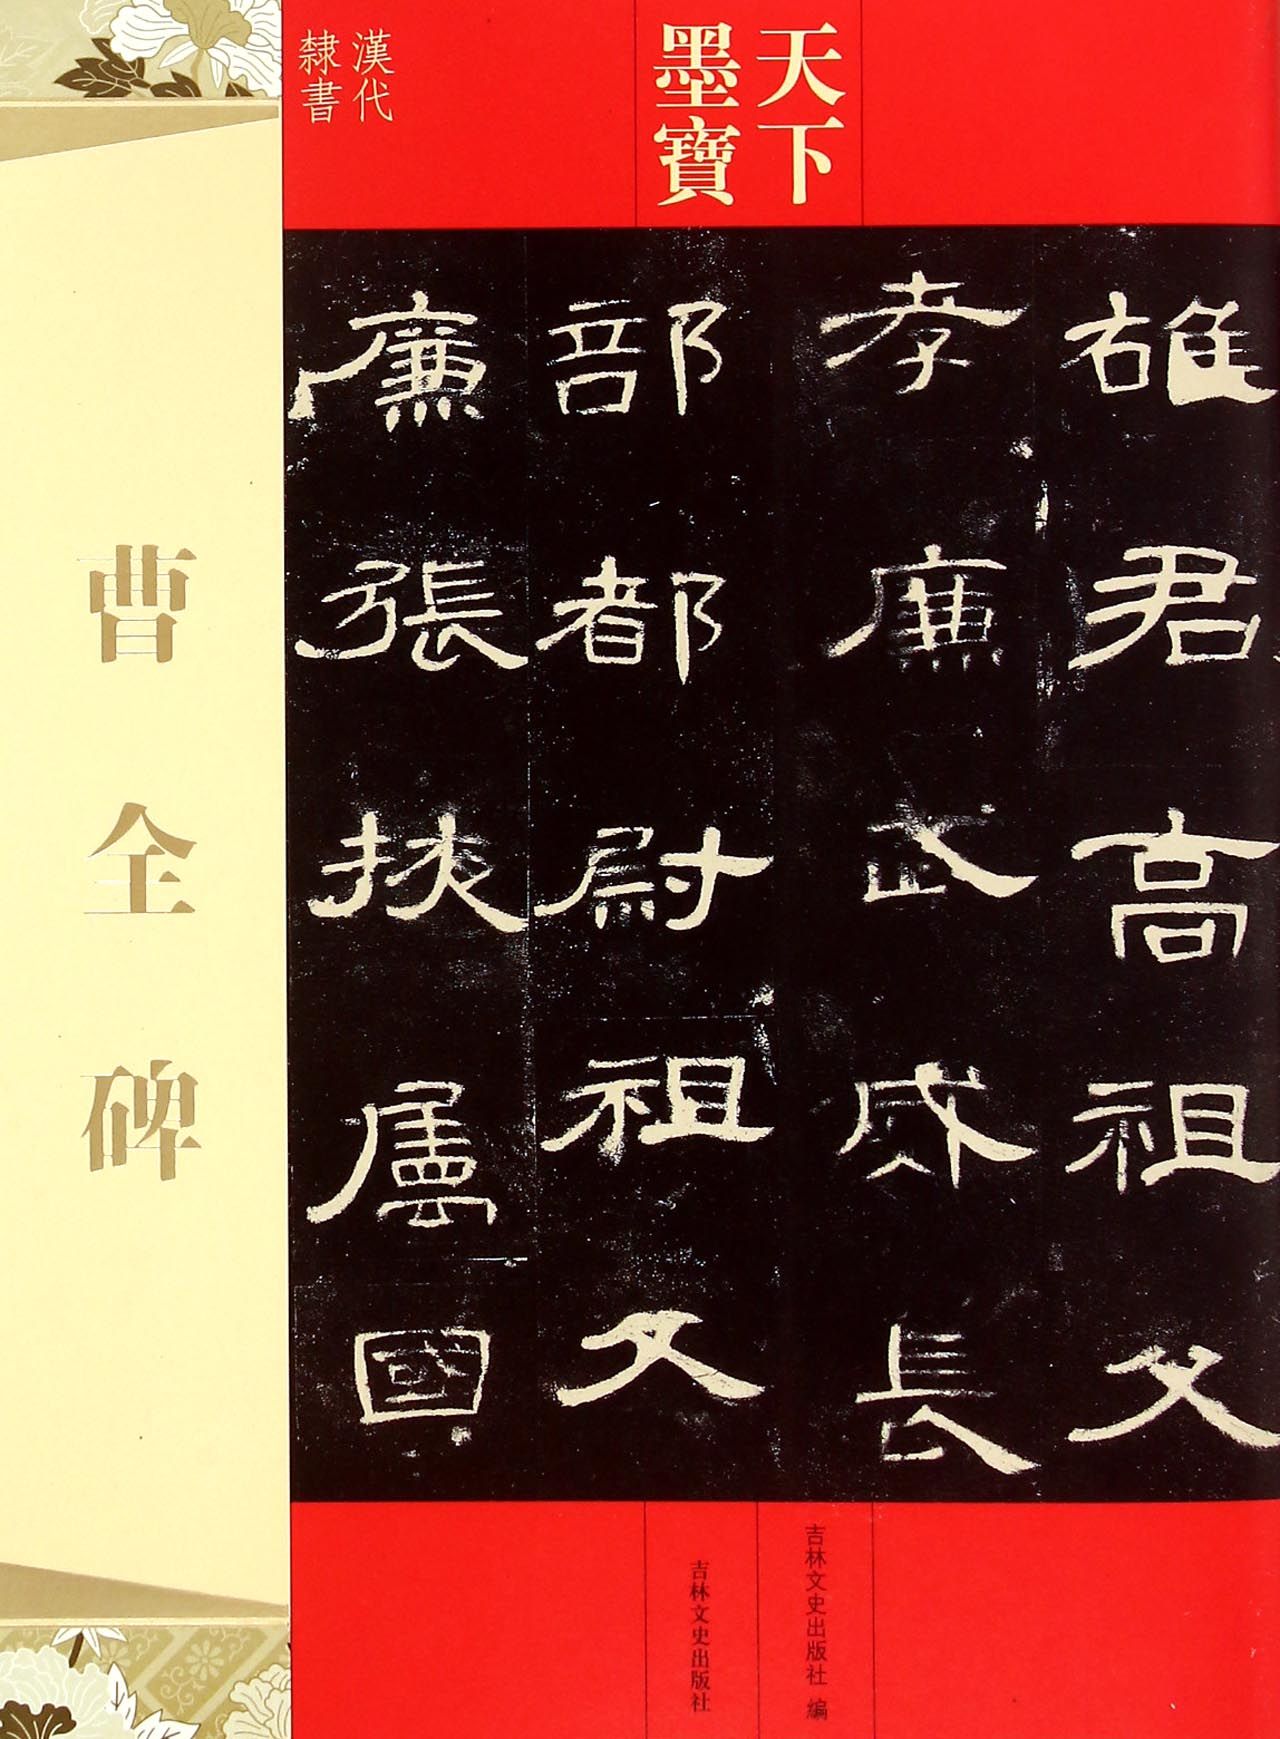 天下
墨寶
漢代
隸書
雄君高祖父
孝廉武威長
部都尉祖父
廉張掖屬國
曹全碑
吉林文史出版社 編
吉林文史出版社